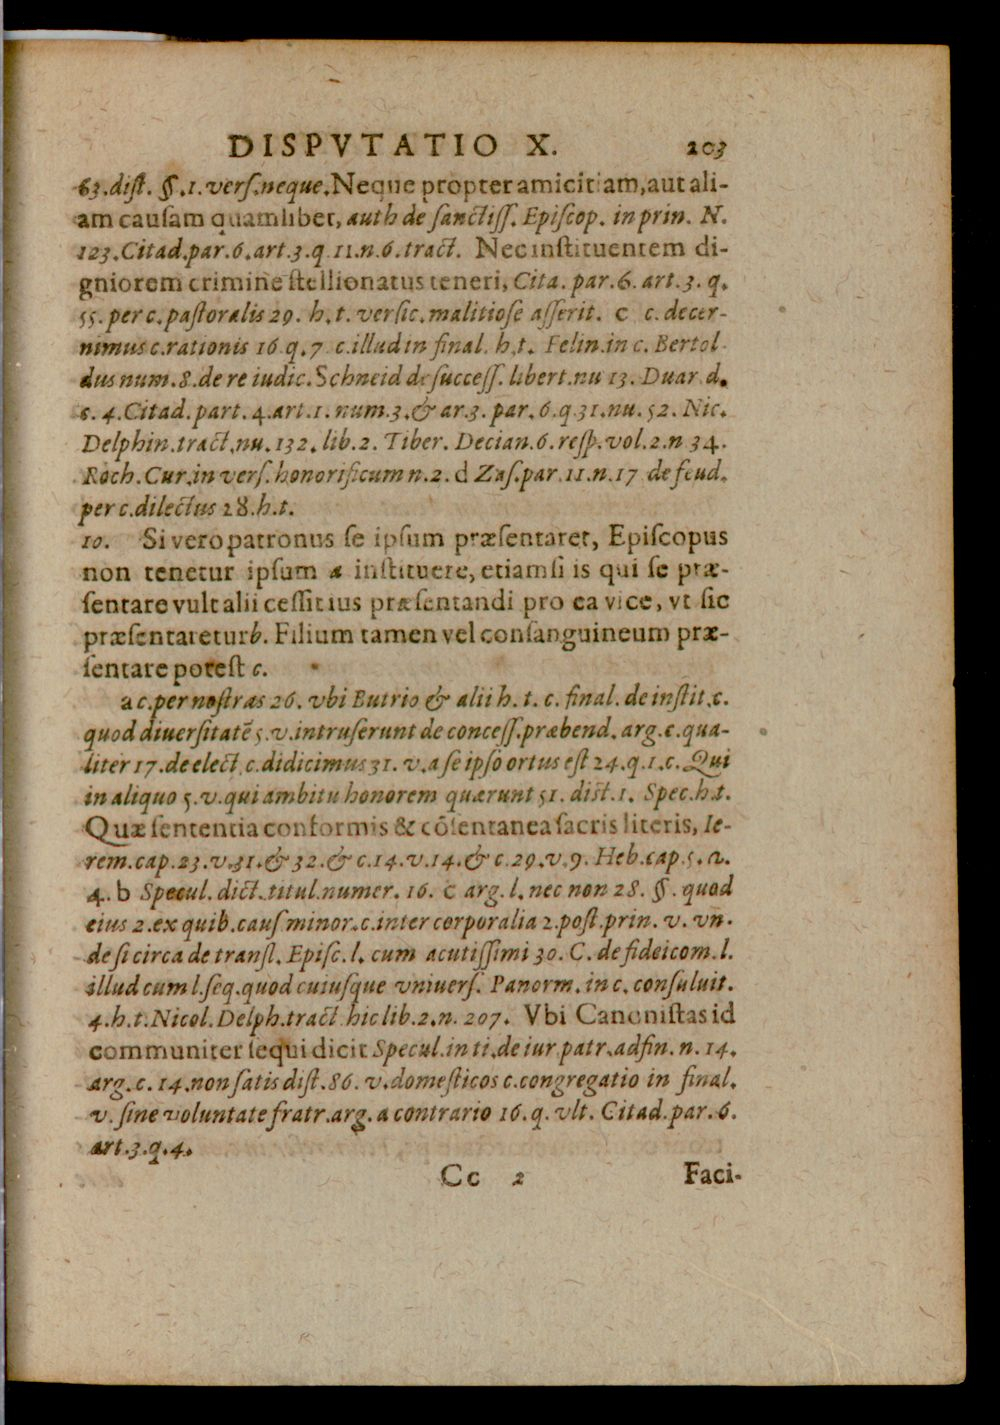 DISPVTATIO X. 203
63.dist. §.1.vers.neque. Neque propter amicitiam, aut ali-
am causam quamlibet, auth de sanctiss. Episcop. in prin. N.
123. Citad.par.6.art.3.q 11.n.6.tract. Nec instituentem di-
gniorem crimine stellionatus teneri, Cita. par.6. art.3. q.
55. per c.pastoralis 29. h.t. versic.malitiose asserit. c c. decer-
nimus c.rationis 16 q.7 c.illud in final. h.t. Felin.in c. Bertol
dus num.8.de re iudic. Schneid de success. libert.nu 13. Duar d.
c. 4. Citad. part. 4.art.1. num.3.& ar.3. par.6.q.31.nu.52. Nic.
Delphin.tract.nu.132.lib.2. Tiber. Decian.6.resp.vol.2.n 34.
Roch. Cur.in vers.honorificum n.2. d Zas.par.11.n.17 de feud.
per c.dilectus 28.h.t.
10. Si vero patronus se ipsum præsentaret, Episcopus
non tenetur ipsum a instituere, etiamsi is qui se præ-
sentare vult alii cessit ius præsentandi pro ea vice, vt sic
præsentaretur b. Filium tamen vel consanguineum præ-
sentare potest c.
a c.per nostras 26. vbi Butrio & alii h. t. c. final. de instit.c.
quod diuersitatē 5.v.intruserunt de concess.præbend. arg.c.qua-
liter 17.de elect c.didicimus 31. v.a se ipso ortus est 24.q.1.c. Qui
in aliquo 5.v.qui ambitu honorem quærunt 51. dist.1. Spec.h.t.
Quæ sententia conformis & cōsentanea sacris literis, Ie-
rem.cap.23.v.31.& 32.& c.14.v.14.& c.29.v.9. Heb.cap.5.a.
4. b Specul. dict.titul.numer. 16. c arg.l. nec non 28. §. quod
eius 2.ex quib.caus minor.c.inter corporalia 2.post.prin. v. vn-
de si circa de transl. Episc.l. cum acutissimi 30. C. de fideicom.l.
illud cum l.seq.quod cuiusque vniuers. Panorm. in c. consuluit.
4.h.t. Nicol. Delph.tract hic lib.2.n. 207. Vbi Canonistas id
communiter sequi dicit Specul.in ti.de iur patr.adfin.n.14.
arg.c. 14.non satis dist.86. v.domesticos c.congregatio in final.
v. sine voluntate fratr.arg. a contrario 16.q. vlt. Citad.par.6.
art.3.q.4.
Cc 2 Faci-